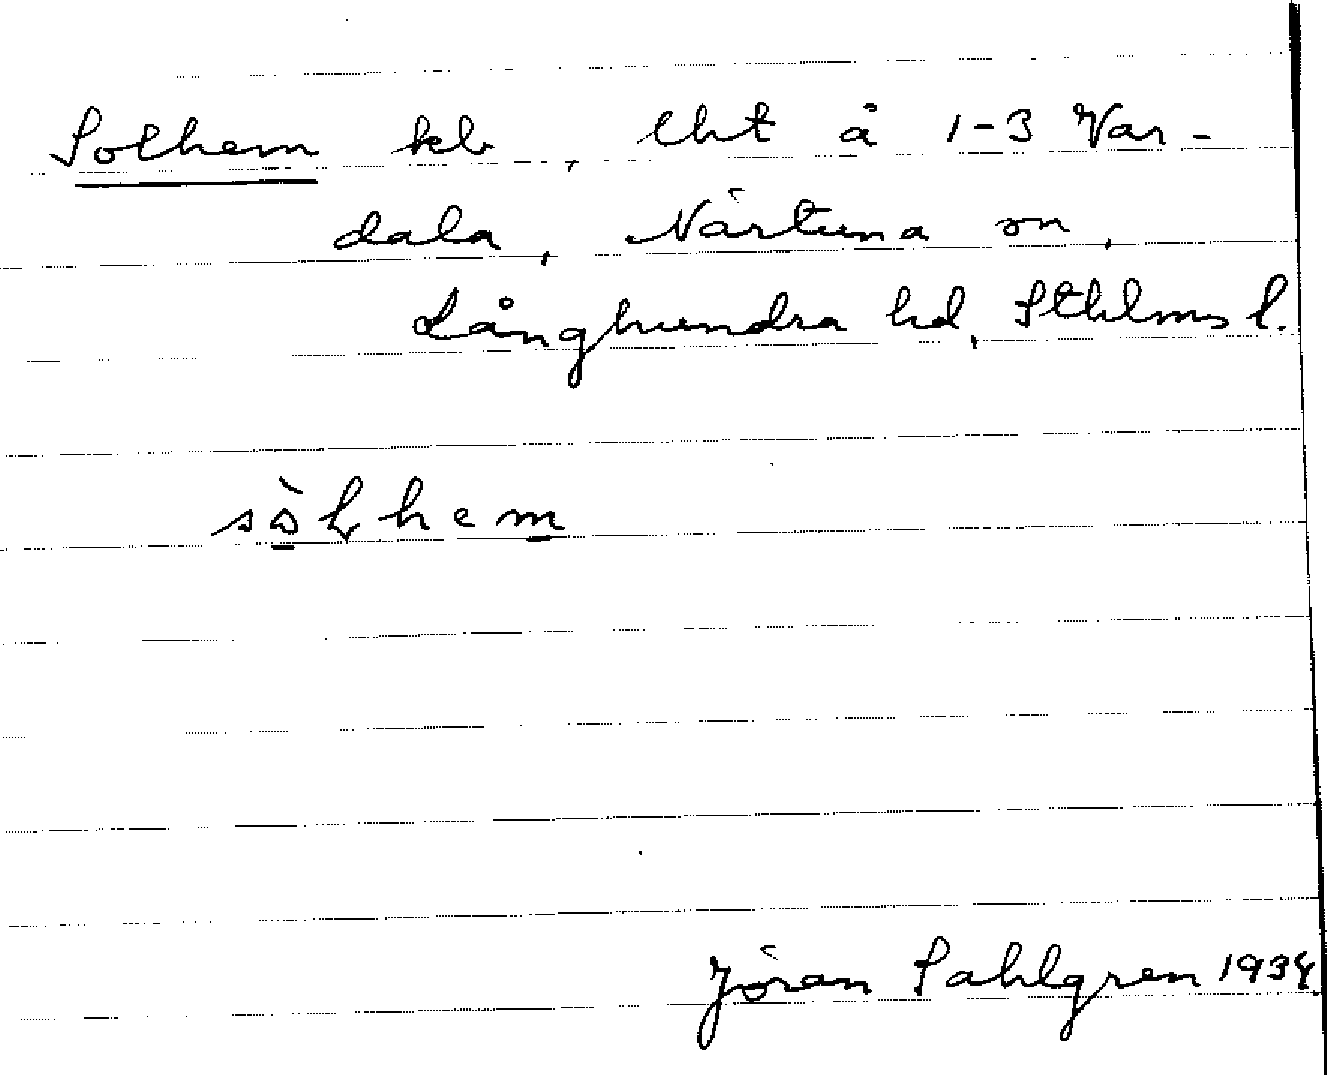 Solhem kb, lht å 1-3 Var-
dala, Närtuna sn,
Långhundra hd, Sthlms l.
Jöran Sahlgren 1934